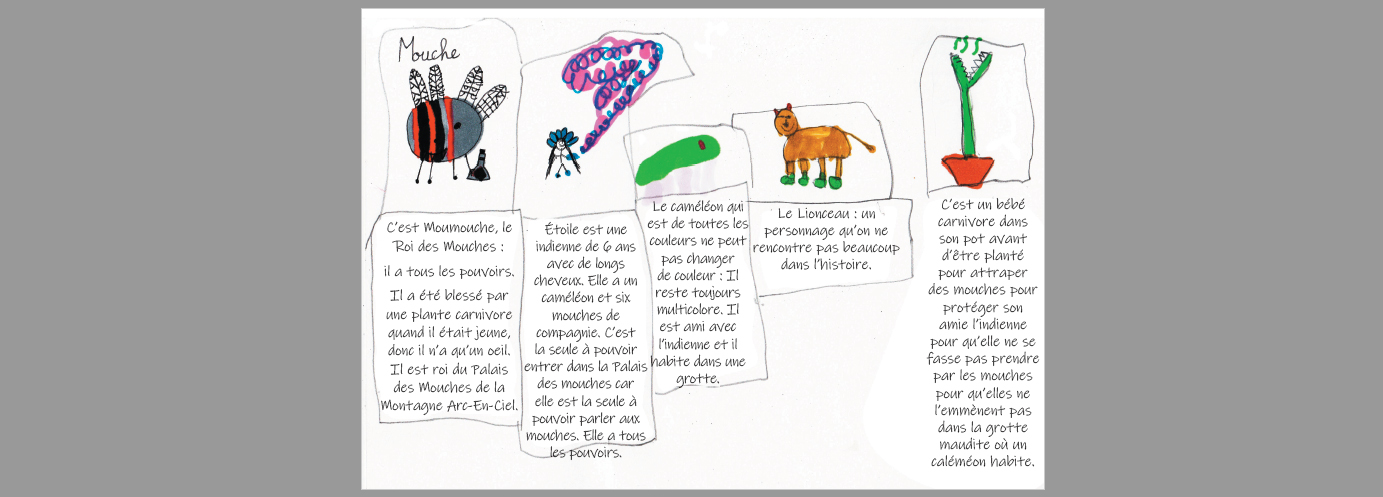 Mouche
C'est Moumouche, le
Roi des Mouches :
il a tous les pouvoirs.
Il a été blessé par
une plante carnivore
quand il était jeune,
donc il n'a qu'un oeil.
Il est roi du Palais
des Mouches de la
Montagne Arc-En-Ciel.
Étoile est une
indienne de 6 ans
avec de longs
cheveux. Elle a un
caméléon et six
mouches de
compagnie. C'est
la seule à pouvoir
entrer dans la Palais
des mouches car
elle est la seule à
pouvoir parler aux
mouches. Elle a tous
les pouvoirs.
Le caméléon qui
est de toutes les
couleurs ne peut
pas changer
de couleur : Il
reste toujours
multicolore. Il
est ami avec
l'indienne et il
habite dans une
grotte.
Le Lionceau : un
personnage qu'on ne
rencontre pas beaucoup
dans l'histoire.
C'est un bébé
carnivore dans
son pot avant
d'être planté
pour attraper
des mouches pour
protéger son
amie l'indienne
pour qu'elle ne se
fasse pas prendre
par les mouches
pour qu'elles ne
l'emmènent pas
dans la grotte
maudite où un
caléméon habite.